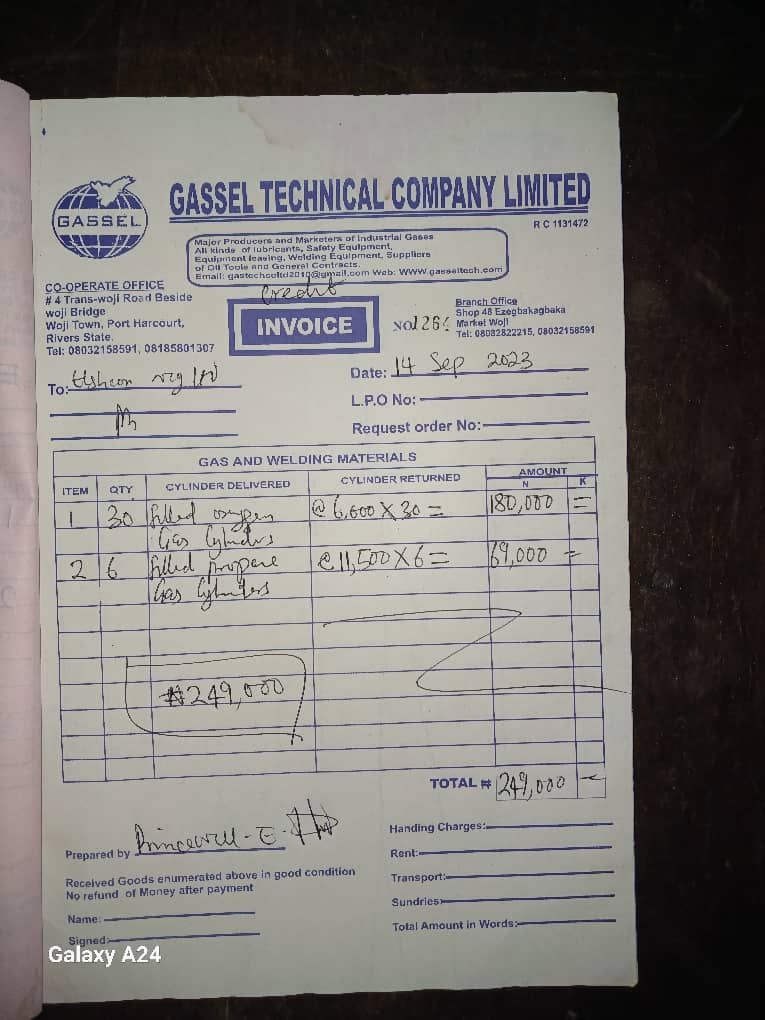 GASSEL
GASSEL TECHNICAL COMPANY LIMITED
R C 1131472
Major Producers and Marketers of Industrial Gases
All kinds of lubricants, Safety Equipment,
Equipment leasing, Welding Equipment, Suppliers
of Oil Tools and General Contracts.
Email: gastechcoltd2010@gmail.com Web: WWW.gasseltech.com
CO-OPERATE OFFICE
# 4 Trans-woji Road Beside
woji Bridge
Woji Town, Port Harcourt,
Rivers State.
Tel: 08032158591, 08185801307
Credit
INVOICE
Branch Office
Shop 48 Ezegbakagbaka
Market Woji
Tel: 08082822215, 08032158591
NO 1264
Date: 14 Sep 2023
To:
L.P.O No:
Request order No:
GAS AND WELDING MATERIALS
ITEM QTY CYLINDER DELIVERED CYLINDER RETURNED AMOUNT
N K
1 30 filled oxygen @ 6,000 X 30 = 180,000 =
Gas Cylinders
2 6 filled propane @ 11,500 X 6 = 69,000 =
Gas Cylinders
₦249,000
TOTAL ₦ 249,000 =
Prepared by Princewill - E -
Received Goods enumerated above in good condition
No refund of Money after payment
Name:
Signed:
Handing Charges:
Rent:
Transport:
Sundries:
Total Amount in Words:
Galaxy A24